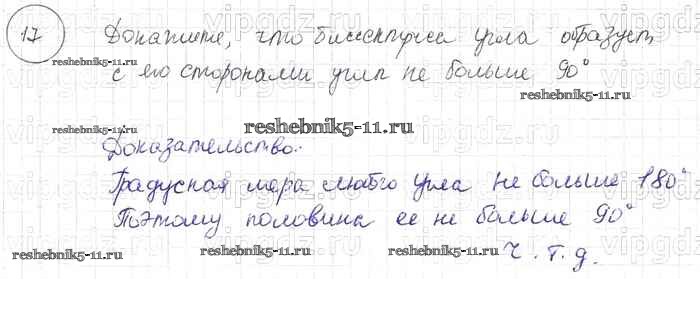 17
Докажите, что биссектриса угла образует
с его сторонами угл не больше 90°
Доказательство:
Градусная мера любого угла не больше 180°
Поэтому половина ее не больше 90°
Ч.т.д.
reshebnik5-11.ru
reshebnik5-11.ru
reshebnik5-11.ru
reshebnik5-11.ru
reshebnik5-11.ru
reshebnik5-11.ru
vipgdz.ru
vipgdz.ru
vipgdz.ru